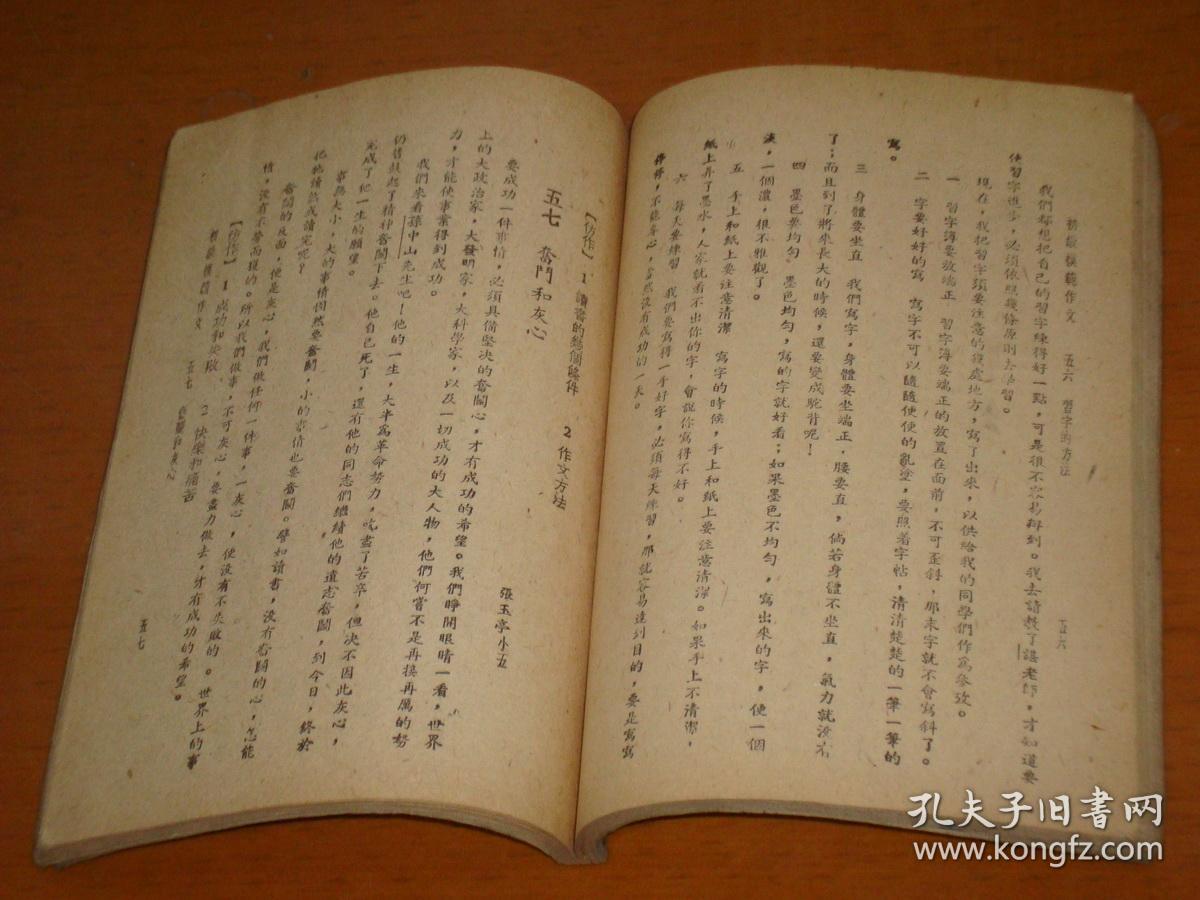 初級模範作文 五六 習字的方法 五六
我們都想把自己的習字練得好一點,可是很不容易辦到。我去請教了諶老師,才知道要
使習字進步,必須依照幾條原則去學習。
現在,我把習字須要注意的幾處地方,寫了出來,以供給我的同學們作為參攷。
一 習字簿要放端正 習字簿要端正的放置在面前,不可歪斜,那末字就不會寫斜了。
二 字要好好的寫 寫字不可以隨隨便便的亂塗,要照着字帖,清清楚楚的一筆一筆的
寫。
三 身體要坐直 我們寫字,身體要坐端正,腰要直,倘若身體不坐直,氣力就沒有
了;而且到了將來長大的時候,還要變成駝背呢!
四 墨色要均勻 墨色均勻,寫的字就好看;如果墨色不均勻,寫出來的字,便一個
淡,一個濃,很不雅觀了。
五 手上和紙上要注意清潔 寫字的時候,手上和紙上要注意清潔。如果手上不清潔,
紙上弄了墨水,人家就看不出你的字,會說你寫得不好。
六 每天要練習 我們要寫得一手好字,必須每天練習,那就容易達到目的,要是寫寫
停停,不能專心,當然沒有成功的一天。
【仿作】 1 讀書的幾個條件 2 作文方法
五七 奮鬥和灰心 張玉亭小五
要成功一件事情,必須具備堅決的奮鬭心,才有成功的希望。我們睜開眼睛一看,世界
上的大政治家,大發明家,大科學家,以及一切成功的大人物,他們何嘗不是再接再厲的努
力,才能使事業得到成功。
我們來看孫中山先生吧!他的一生,大半為革命努力,吃盡了苦辛,但決不因此灰心,
仍舊鼓起了精神奮鬭下去。他自己死了,還有他的同志們繼續他的遺志奮鬭,到今日,終於
完成了他一生的願望。
事無大小,大的事情固然要奮鬭,小的事情也要奮鬭。譬如讀書,沒有奮鬭的心,怎能
把牠讀熟或讀完呢?
奮鬭的反面,便是灰心,我們做任何一件事,一灰心,便沒有不失敗的。世界上的事
情,沒有不勞而獲的。所以我們做事,不可灰心,要盡力做去,才有成功的希望。
【仿作】 1 成功和失敗 2 快樂和痛苦
初級模範作文 五七 奮鬭和灰心 五七
孔夫子旧书网
www.kongfz.com